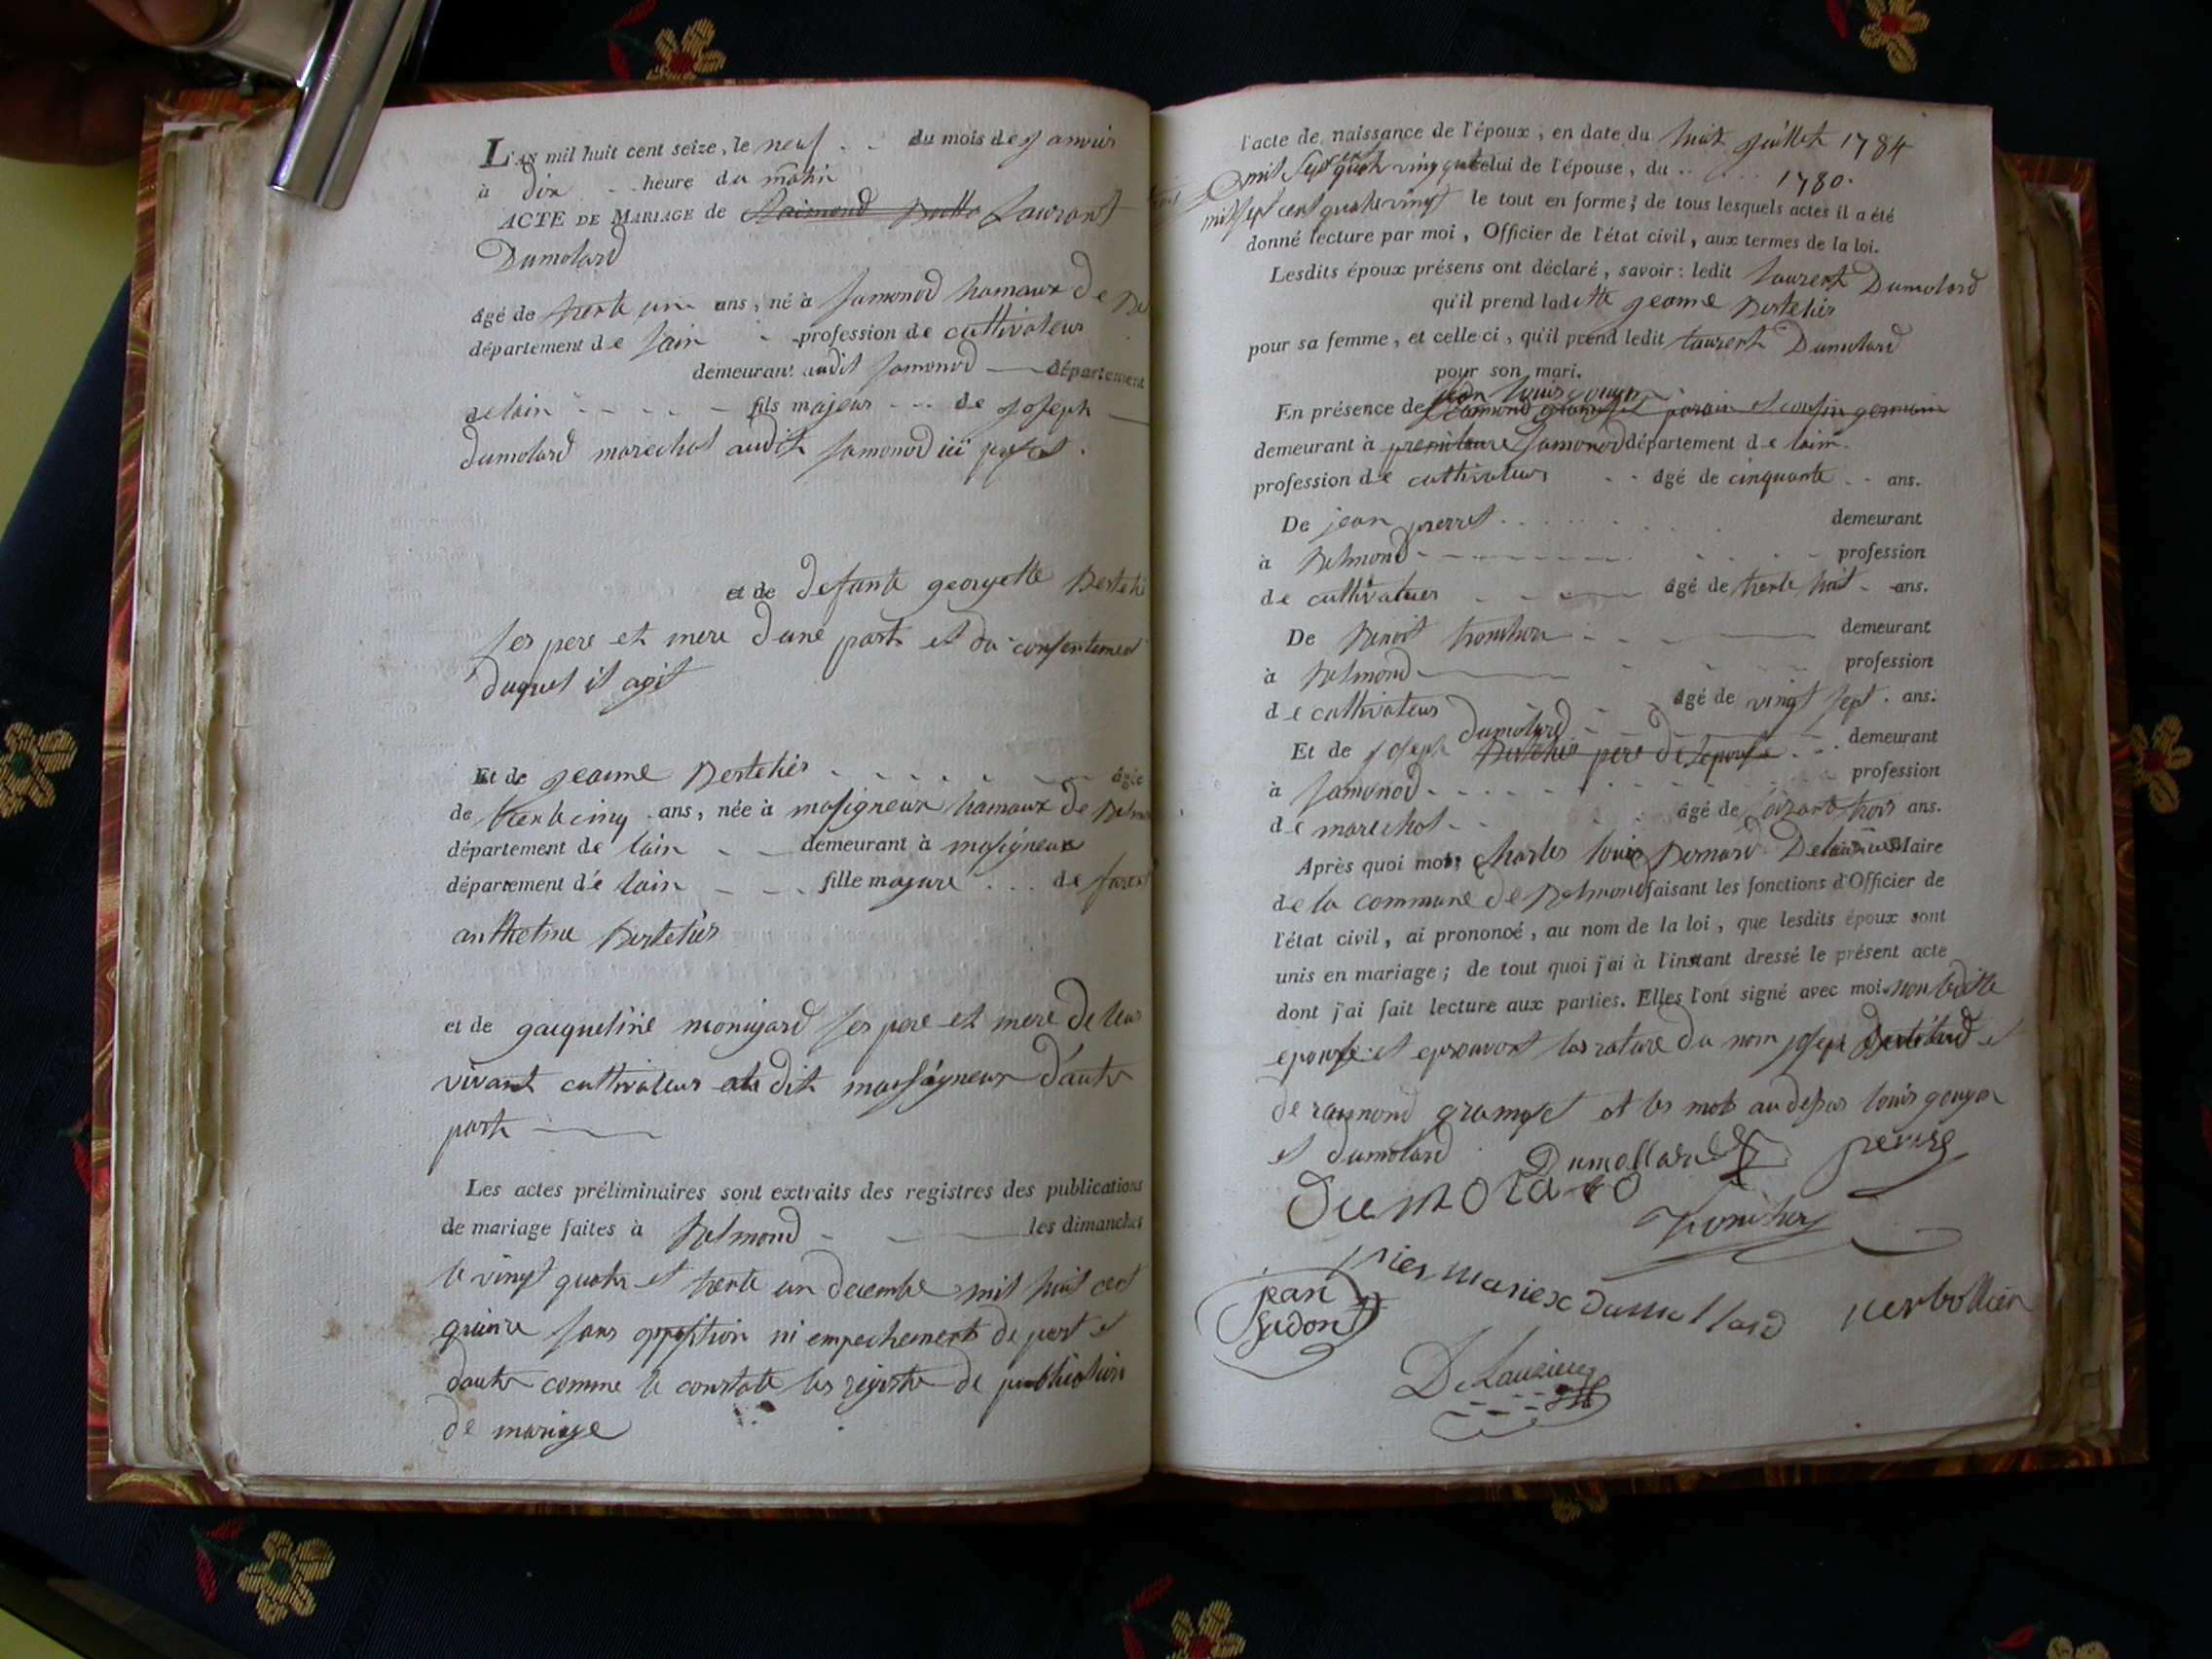 L'an mil huit cent seize, le neuf . . du mois de janvier
à dix . . heure du matin
ACTE DE MARIAGE de Laurant
Dumolard
âgé de trente un ans, né à Samonod hamaux de Be
département de lain - profession de cultivateur
demeurant audit Samonod — département
de lain - - - - - fils majeur - - - de joseph —
dumolard marechal audit Samonod ici
et de defunte georgette Berteli
ses pere et mere dune part et du consentement
duquel il agit
Et de jeanne Bertelier - - - - - - - âgée
de trente cinq ans, née à masigneux hamaux de Belmo
département de lain - - demeurant à masigneux
département de lain - - - fille majeure . . . de
anthelme Bertelier
et de gacqueline monigard ses pere et mere de leur
vivant cultivateur dit masigneux d'autre
part —
Les actes préliminaires sont extraits des registres des publications
de mariage faites à Belmond - — les dimanches
le vingt quatre et trente un decembre mil huit cent
quinze sans oppossition ni empechement de part et
dautre comme le constate les registre de publication
de mariage
l'acte de naissance de l'époux, en date du huit juillet 1784
mil sept cent quatre vingt celui de l'épouse, du . . . . . 1780.
mil sept cent quatre vingt le tout en forme; de tous lesquels actes il a été
donné lecture par moi, Officier de l'état civil, aux termes de la loi.
Lesdits époux présens ont déclaré, savoir: ledit laurent Dumolard
qu'il prend laditte jeanne Bertelier
pour sa femme, et celle ci, qu'il prend ledit laurent Dumolard
pour son mari.
jean louis gouyon
En présence de parain et cousin germain
demeurant à Samonod département de lain.
profession de cultivateur . . âgé de cinquante . . ans.
De jean perret . . . . . . . demeurant
à Belmond - - - - - - - - profession
de cultivateur - - - — âgé de trente huit - ans.
De Benoit tronchon - - - — demeurant
à Belmond — - - - profession
de cultivateur - - âgé de vingt sept . ans.
dumolard
Et de joseph Bertelier pere de lepouse . . . demeurant
à Samonod . . . . . . . . . profession
de marechal - - âgé de soixante trois ans.
Après quoi moi, charles louis Bernard Delauzieres Maire
de la commune de Belmond faisant les fonctions d'Officier de
l'état civil, ai prononcé, au nom de la loi, que lesdits époux sont
unis en mariage; de tout quoi j'ai à l'instant dressé le présent acte
dont j'ai fait lecture aux parties. Elles l'ont signé avec moi non laditte
epouse et eprouvont las rature du nom joseph et
de raymond gramot et les mots au desus louis gouyon
et dumolard Dumollard
Dumolard
tronchon
pier mariex dumollard
jean
Sudon
Delauzieres